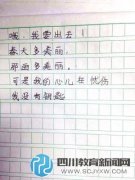 哦,我要出去!
春天多美丽,
那画多美丽。
可是我的心儿在忧伤
我没有钥匙
四川教育新闻网